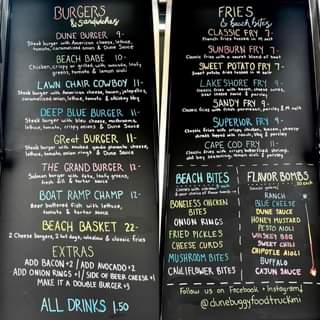 BURGERS
& Sandwiches
DUNE BURGER 9-
Steak burger with American cheese, lettuce,
tomato, caramelized onion & Dune Sauce
BEACH BABE 10-
Chicken, crispy or grilled with avocado, leafy
greens, tomato & lemon aioli
LAWN CHAIR COWBOY 11-
Steak burger with American cheese, bacon, jalapeños,
caramelized onion, lettuce, tomato & whiskey bbq
DEEP BLUE BURGER 11-
Steak burger with bleu cheese, mushrooms,
lettuce, tomato, crispy onions & Dune Sauce
GReat BURGER 11-
Steak burger with smoked gouda pimento cheese,
lettuce, tomato, onion rings & Dune Sauce
THE GRAND BURGER 12-
Salmon burger with feta, leafy greens,
fresh dill & tartar sauce
BOAT RAMP CHAMP 12-
Beer battered fish with lettuce,
tomato & tartar sauce
BEACH BASKET 22-
2 Cheese burgers, 2 hot dogs, windmill & classic fries
EXTRAS
ADD BACON +2 / ADD AVOCADO +2
ADD ONION RINGS +1 / SIDE OF BEER CHEESE +1
MAKE IT A DOUBLE BURGER +3
ALL DRINKS 1.50
FRIES
& beach bites
CLASSIC FRY 7-
French fries tossed in M salt
SUNBURN FRY 7-
Classic fries with a secret blend of heat
SWEET POTATO FRY 7-
Sweet potato fries tossed in M salt
LAKESHORE FRY 7-
SANDY FRY 9-
Classic fries with fresh parmesan, parsley & M salt
SUPERIOR FRY 9-
Classic fries with crispy chicken, bacon, cheesy
CAPE COD FRY 11-
BEACH BITES
BONELESS CHICKEN
BITES
ONION RINGS
FRIED PICKLES
CHEESE CURDS
MUSHROOM BITES
CAULIFLOWER BITES
FLAVOR BOMBS
.50 each
RANCH
BLUE CHEESE
DUNE SAUCE
HONEY MUSTARD
PESTO AIOLI
WHISKEY BBQ
SWEET CHILI
CHIPOTLE AIOLI
BUFFALO
CAJUN SAUCE
Follow us on Facebook + Instagram!
@dunebuggyfoodtruckmi